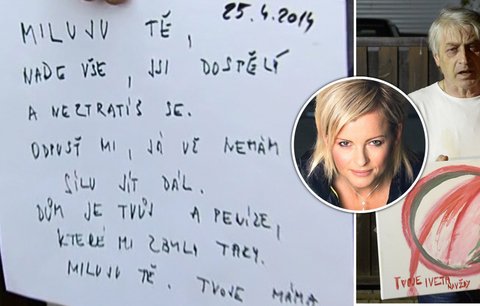 25.4.2014
MILUJU TĚ,
NADE VŠE, JSI DOSPĚLÝ
A NEZTRATÍŠ SE.
ODPUSŤ MI, JÁ UŽ NEMÁM
SÍLU JÍT DÁL.
DŮM JE TVŮJ A PENÍZE,
KTERÉ MI ZBYLY TAKY.
MILUJU TĚ. TVOJE MÁMA
TVOJE IVETA
NAVŽDY